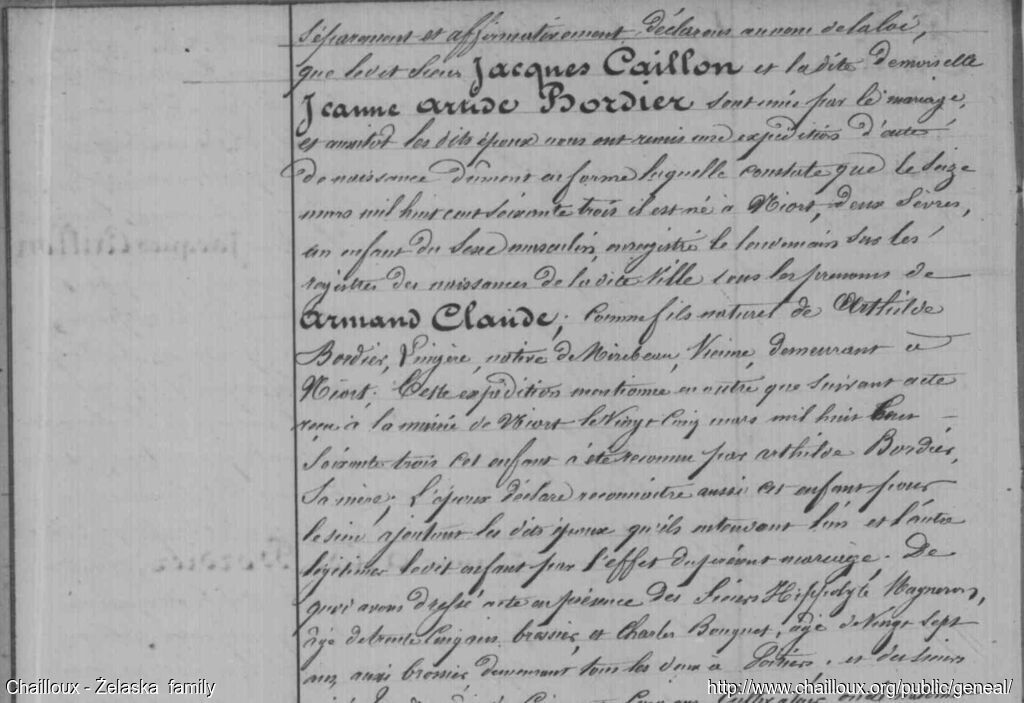 séparément et affirmativement, déclarons au nom de la loi,
que le dit sieur Jacques Caillon et la dite demoiselle
Jeanne Artide Bordier sont unis par le mariage,
et aussitôt les dits époux nous ont remis une expédition d'acte
de naissance dûment en forme laquelle constate que le seize
mars mil huit cent soixante trois il est né à Niort, deux Sèvres,
un enfant du sexe masculin, enregistré le lendemain sur les
registres des naissances de la dite ville sous les prénoms de
Armand Claude; comme fils naturel de Arthilde
Bordier, Lingère, native de Mirebeau, Vienne, demeurant à
Niort; Cette expédition mentionne en outre que suivant acte
reçu à la mairie de Niort le Vingt Cinq mars mil huit Cent
Soixante trois cet enfant a été reconnu par Arthilde Bordier,
Sa mère; L'époux déclare reconnoitre aussi cet enfant pour
le sien ajoutant les dits époux qu'ils entendent l'un et l'autre
légitimer le dit enfant par l'effet du présent mariage. De
quoi avons dressé acte en présence des Sieurs Hippolyte Magneron,
âgé de trente Cinq ans, brossier, et Charles Bouquet, âgé de Vingt sept
ans, aussi brossier, demeurant tous les deux à Poitiers, et des sieurs
Chailloux - Żelaska family
http://www.chailloux.org/public/geneal/